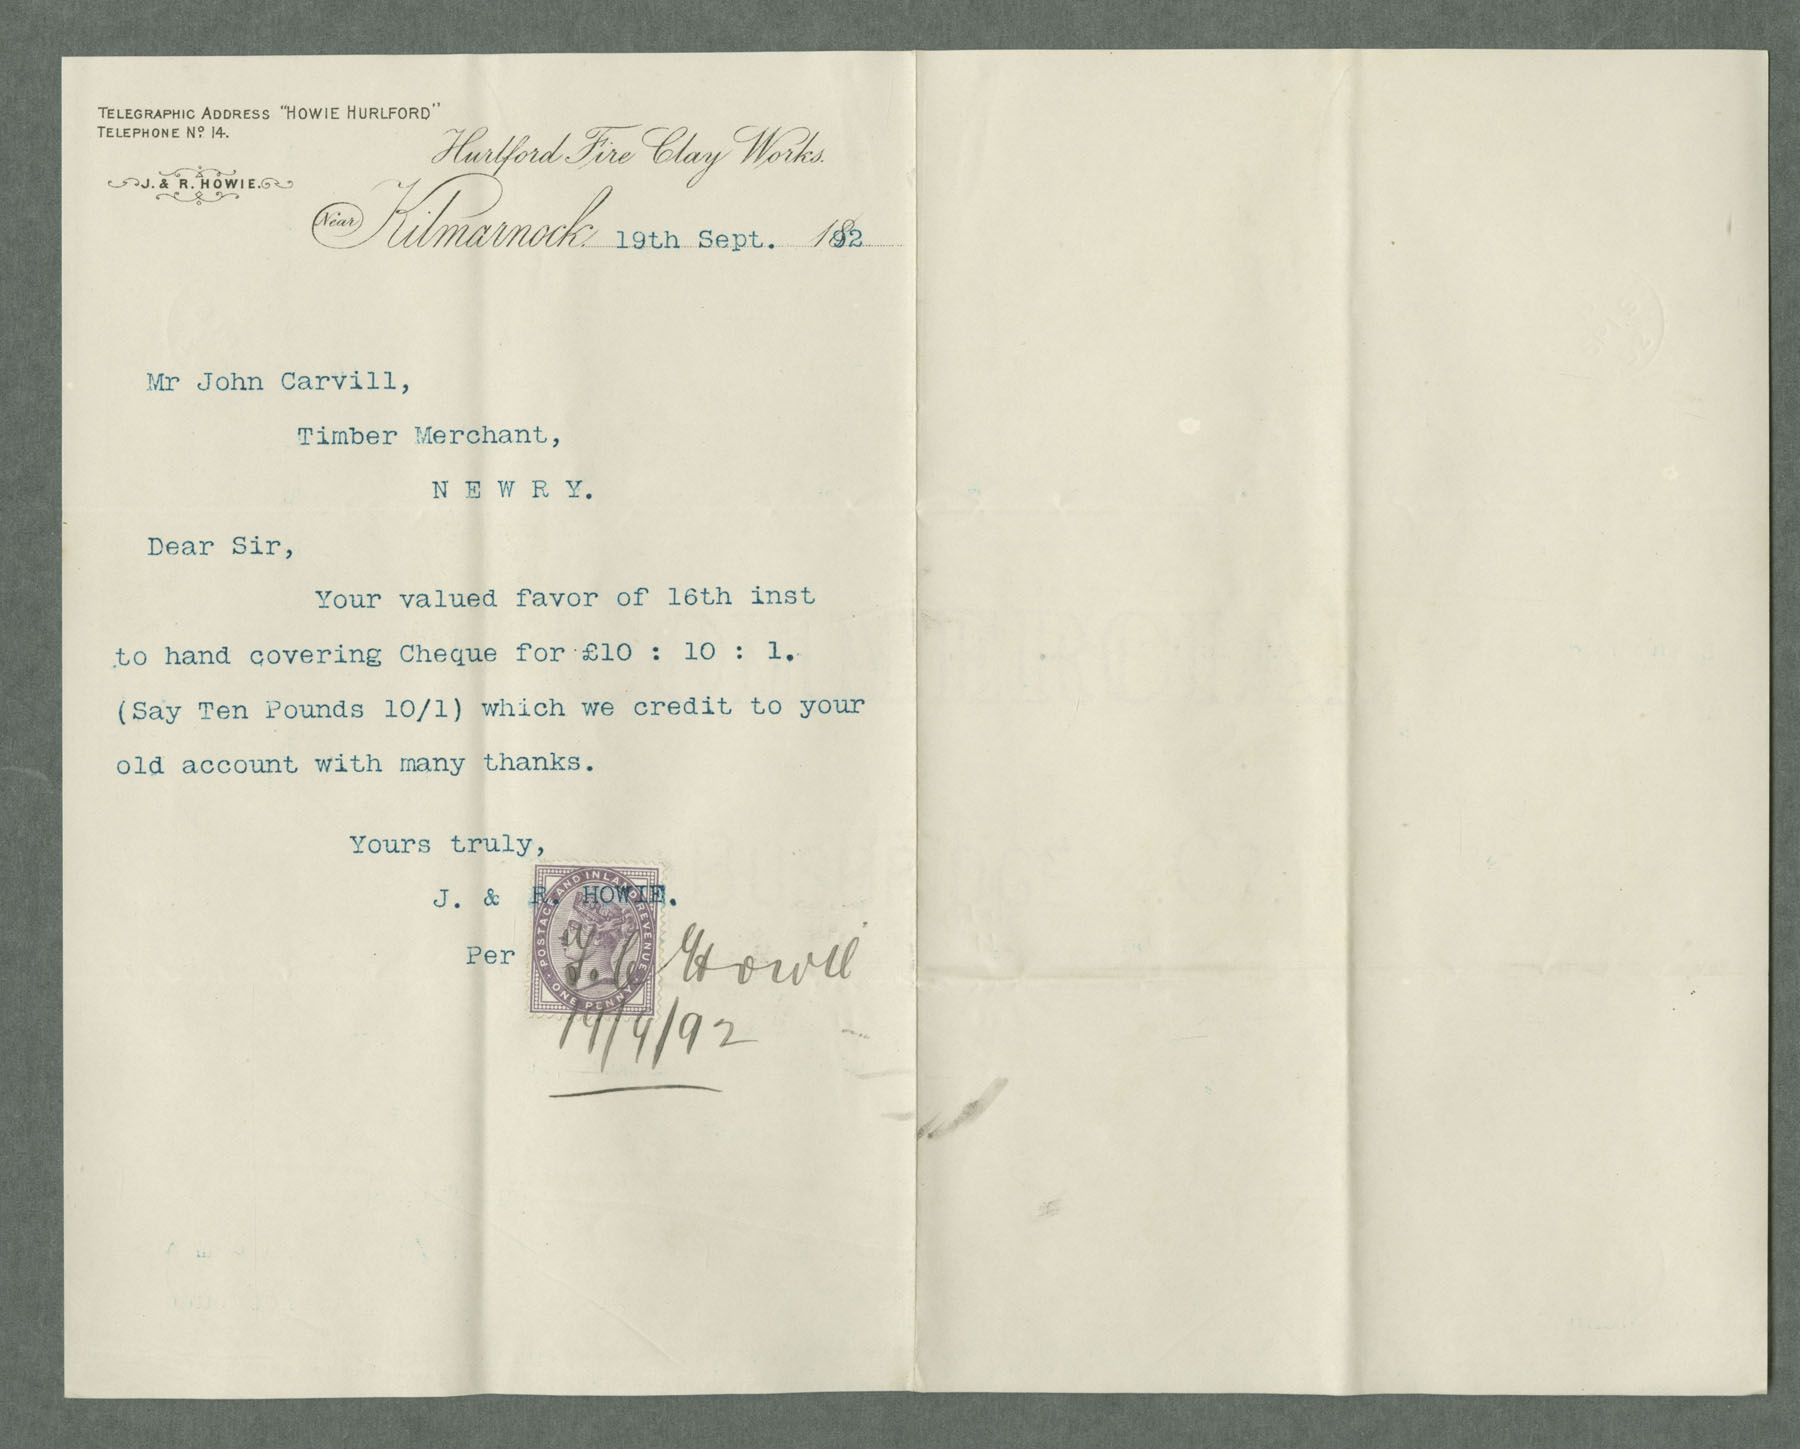 TELEGRAPHIC ADDRESS "HOWIE HURLFORD"
TELEPHONE Nº 14.
J. & R. HOWIE.
Hurlford Fire Clay Works.
Near Kilmarnock. 19th Sept. 1892
Mr John Carvill,
Timber Merchant,
N E W R Y.
Dear Sir,
Your valued favor of 16th inst
to hand covering Cheque for £10 : 10 : 1.
(Say Ten Pounds 10/1) which we credit to your
old account with many thanks.
Yours truly,
J. & R. HOWIE.
Per Howie
POSTAGE AND INLAND REVENUE
ONE PENNY
19/9/92